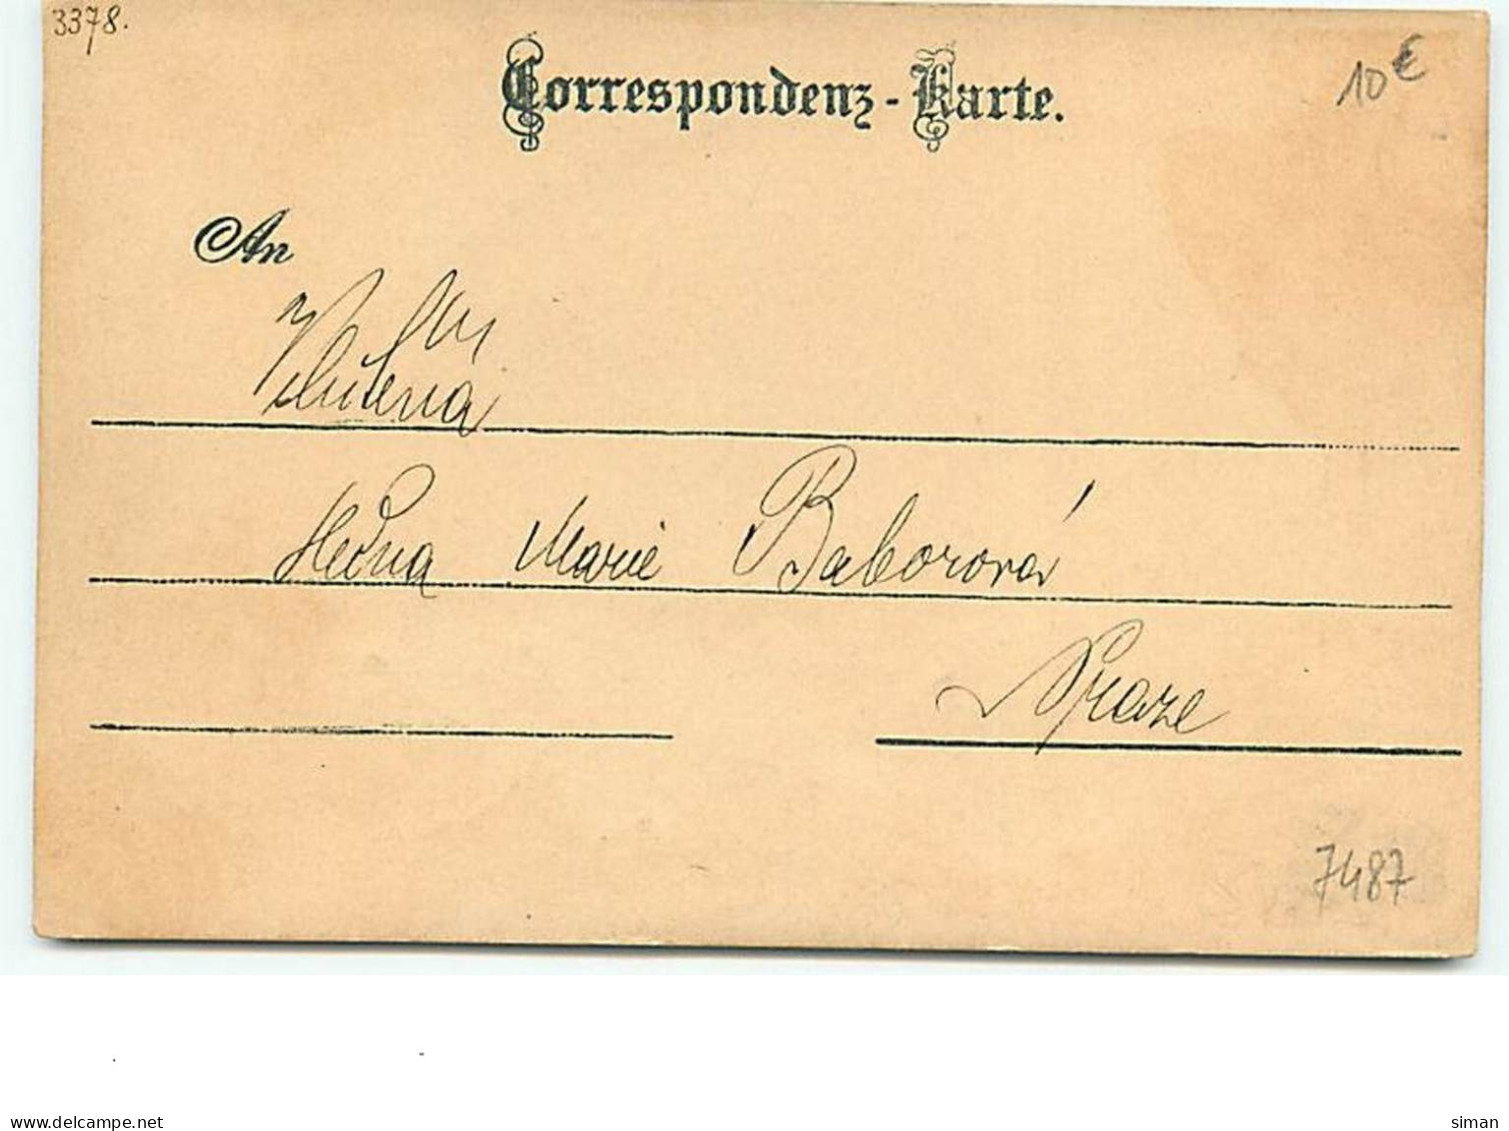 3378.
Correspondenz-Karte.
10 €
An
Slečna Marie Baborová
Praze
7487
delcampe.net
siman